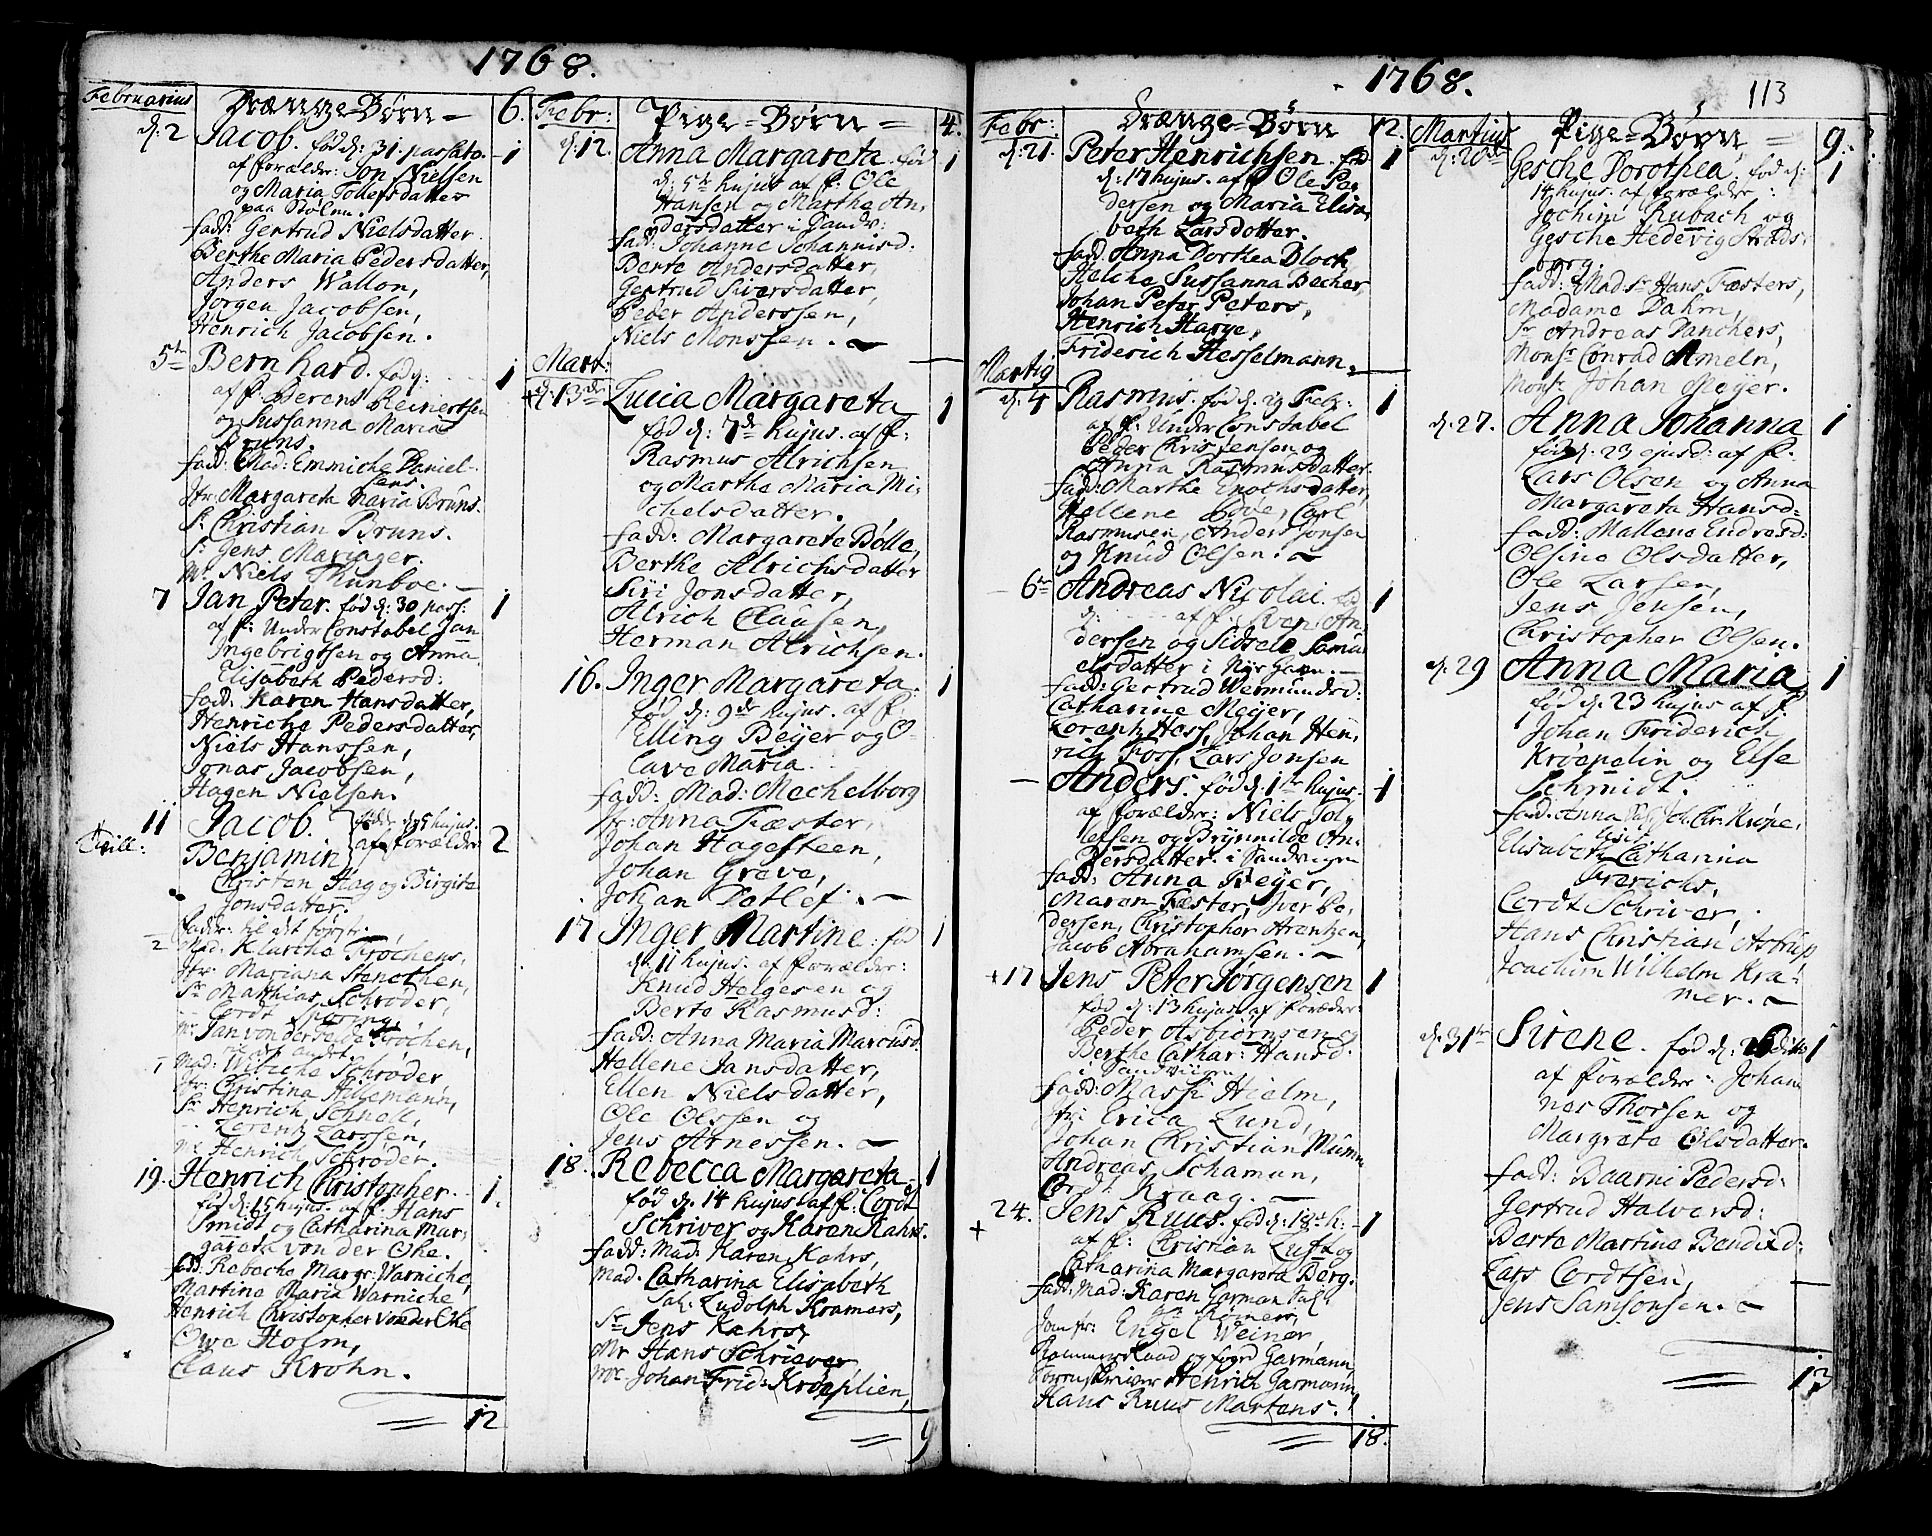 1768.
Februarius
Drænge-Børn
6.
d: 2
Jacob. fød d: 31. passato.
1
af forældre: Jon Nielsen
og Maria Tollefsdatter
paa Stølen.
fadd: Gertrud Nielsdatter.
Berthe Maria Pedersdatter,
Anders Wallon,
Jørgen Jacobsen,
Henrich Jacobsen.
5te
Bernhard. fød d:
1
af f. Berent Reinertsen
og Sussanna Maria
Bruns.
fadd: Mad: Emmiche Daniel-
sens.
Jfr: Margareta Maria Bruns.
Sr. Christian Bruns.
Sr. Jens Mariager.
Mr. Niels Thunboe.
7
Jan Peter. fød d: 30 pass:
1
af f: Under Constabel Jan
Ingebrigtsen og Anna
Elisabeth Pedersd:
fadd: Karen Hansdatter,
Henriche Pedersdatter,
Niels Hanssen,
Jonas Jacobsen,
Hagen Nielsen.
11
Jacob.
fødde d: 5 hujus.
Tvill:
Benjamin
af forældre
2
Christen Hag og Birgita
Jonsdatter.
fadd: til det første.
Mad: Klurche Trochens,
Jfr: Mariana Stenothen,
Sr. Matthias Schrøder,
Cordt Sporing,
Mr. Jan von der Felde Trochen,
til det andet.
Mad: Wibiche Schrøder
Jfr: Christina Hilgemann,
Sr. Henrich Schnell,
Lorentz Larssen,
Mr. Henrich Schrøder.
19.
Henrich Christopher.
1.
fød d: 15 hujus. af f: Hans
Smidt og Catharina Mar-
gareta von der Ohe.
fadd: Rebecke Margr: Warniche,
Martina Maria Warniche
Henrich Christopher von der Ohe
Owe Holm,
Claus Krohn.
12
Febr:
Pige-Børn
4.
d: 12.
Anna Margareta. fød
1
d: 5te hujus af f: Ole
Hansen og Marthe An-
dersdatter i Sandv:
fadd: Johanne Johannisd:
Berte Andersdatter,
Gertrud Siversdatter,
Peder Anderssen,
Niels Monssen.
Mart:
d: 13de
Lucia Margareta
1
fød d: 7de hujus. af f:
Rasmus Alrichsen
og Marthe Maria Mi-
chelsdatter.
fadd: Margarete Bølle,
Berthe Alrichsdatter
Siri Jonsdatter,
Alrich Clausen,
Herman Alrichsen.
16.
Inger Margareta.
1
fød d: 9de hujus. af f:
Elling Beyer og O-
lave Maria
fadd: Mad: Mechelborg
Jfr: Anna Fæster,
Johan Hagesteen,
Johan Greve,
Johan Detlef.
17
Inger Martine: fød
1
d: 11 hujus. af forældre:
Knud Helgesen og
Berte Rasmusd:
fadd: Anna Maria Marcusd.
Hellene Jansdatter,
Ellen Nielsdatter,
Ole Olssen og
Jens Arnessen.
18.
Rebecca Margareta
1
fød d: 14 hujus af f: Cordt
Schriver og Karen Kahrs.
fadd: Mad: Karen Kahrs,
Mad. Catharina Elisabeth
Sal: Ludolph Kramers,
Sr Jens Kahrs,
Mr Hans Schriever,
Mr. Johan Frid: Krøeplien,
9
1768.
113
Febr:
Drænge-Børn
12.
d: 21.
Peter Henrichsen. fød
1
d: 17 hujus. af f: Ole Pe-
dersen og Maria Elisa-
beth Larsdotter.
fadd: Anna Dorthea Bloch
Helche Sussanna Becher,
Johan Peter Peters,
Henrich Harye,
Friderich Hesselmann.
Martij
d: 4
Rasmus. fød d. 29 Febr:
1
af f: Under Constabel
Peder Christensen og
Anna Rasmusdatter.
fadd: Marthe Enochsdatter,
Hellene Love, Carl
Rasmusen, Anders Jonsen
og Knud Olsen.
6te
Andreas Nicolai. fød
1
d: af f: Sven An-
dersen og Sidsele Samu-
elsdatter i Nyr Gavn.
fadd: Gertrud Wermundsd:
Catharine Meyer,
Lorentz Hess, Johan Hen-
rich Foss, Lars Jonsen
Anders. fød d. 1te hujus.
1
af forældre: Niels Tol-
lefsen og Brynnilde An-
dersdatter. i Sandvigen
fadd: Anna Beyer,
Maren Fæster, Iver Pe-
dersen, Christopher Arentzen,
Jacob Abrahamsen.
17
Jens Peter Jorgensen
1
fød d: 13 hujus af foræder:
Peder Asbjørnsen og
Berthe Cathar: Hansd.
i Sandviigen
fadd: Massi Hielm,
Jfr: Erica Lund,
Johan Christian Mumm
Andreas Schaman,
Cordt Kraag.
24.
Jens Ruus. fød d: 18 h.
1
af f: Christian Luft og
Catharina Margareta Berg.
fadd: Mad: Karen Garman Sal:
Rømers,
Jomfr: Engel Weiner,
Kammerraad og foged Garmann,
Sorenskriver Henrich Garmann,
Hans Ruus Martens.
18.
Martius
Pige-Børn
9.
d: 20de
Gesche Dorothea. fød d:
1
14 hujus. af forældre:
Jochim Rubach og
Gesche Hedevig Strøds-
borg.
fadd: Mads: Hans Fæsters,
Madame Dahm,
Sr Andreas Danchers,
Monsr Conrad Ameln,
Monsr Johan Meyer.
d. 27.
Anna Johanna
1
fød d. 23 ejusd: af f:
Lars Olsen og Anna
Margareta Hansd:
fadd: Mallene Endresd:
Olsine Olsdatter,
Ole Larsen,
Jens Jensen,
Christopher Olsen.
d. 29
Anna Maria
1
fød d. 23 hujus af f.
Johan Friderich
Krøepelin og Else
Schmidt.
fad: Anna Sal: Joh: Chr: Krøpe-
lin,
Elisabeth Catharina
Frerichs,
Cordt Schriver,
Hans Christian Astrup
Joachim Wilhelm Kra-
mer.
d. 31te
Sirene. fød d: 26 dito
1
af forældre: Johan-
nes Thorsen og
Margrete Olsdatter.
fadd: Baarni Pedersd:
Gertrud Halversd:
Berte Martine Bendixd:
Lars Cordtsen,
Jens Samsonsen.
13